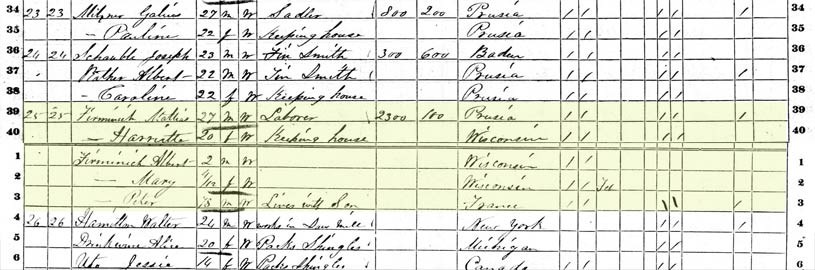 34 23 23 Mitzner Galius 27 m W Sadler 800 200 Prusia 1 1 1 1 1 34
35 — Pauline 22 f W Keeping house Prusia 1 1 1 1 35
36 24 24 Schauble Joseph 23 m W Tin Smith 300 600 Baden 1 1 1 1 36
37 Albert 22 m W Tin Smith Prusia 1 1 1 1 1 37
38 — Caroline 22 f W Keeping house Prusia 1 1 1 1 38
39 25 25 Firminich Mathias 27 m W Laborer 2300 100 Prusia 1 1 1 1 1 39
40 — Harriette 20 f W Keeping house Wisconsin 1 1 40
1 Firminich Albert 2 m W Wisconsin 1 1 1
2 — Mary f W Wisconsin 1 1 2
3 — Peter m W Lives with Son France 1 1 1 1 1 3
4 26 26 Hamilton Walter 24 m W works in Mill New York 1 1 1 4
5 Alice 20 f W Packs Shingles Michigan 1 1 5
6 Jessie 14 f W Packs Shingles Canada 6